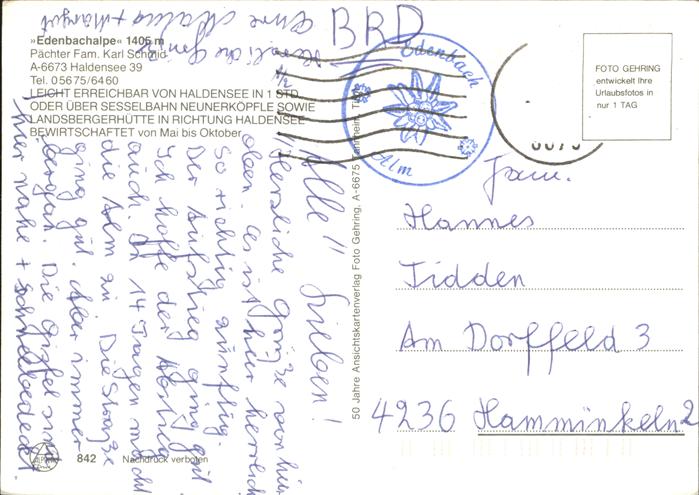 »Edenbachalpe« 1405 m
Pächter Fam. Karl Schmid
A-6673 Haldensee 39
Tel. 05675/6460
LEICHT ERREICHBAR VON HALDENSEE IN 1 STD.
ODER ÜBER SESSELBAHN NEUNERKÖPFLE SOWIE
LANDSBERGERHÜTTE IN RICHTUNG HALDENSEE
BEWIRTSCHAFTET von Mai bis Oktober
BRD
Edenbach
Alm
FOTO GEHRING
entwickelt Ihre
Urlaubsfotos in
nur 1 TAG
6675
Fam.
Hannes
Tidden
Am Dorffeld 3
4236 Hamminkeln 2
Alle Lieben!
Herzliche Grüße von hier
oben. Es ist hier herrlich
So richtig zünftig.
Der Aufstieg ging gut.
Ich hoffe der Abstieg
auch. In 14 Tagen macht
die Alm zu. Die Straße
ging gut. Aber immer
bergan. Die Gipfel sind
hier nahe + schneebedeckt
Herzliche Grüße
Eure + Margret
50 Jahre Ansichtskartenverlag Foto Gehring, A-6675 Tannheim, Tirol
842 Nachdruck verboten